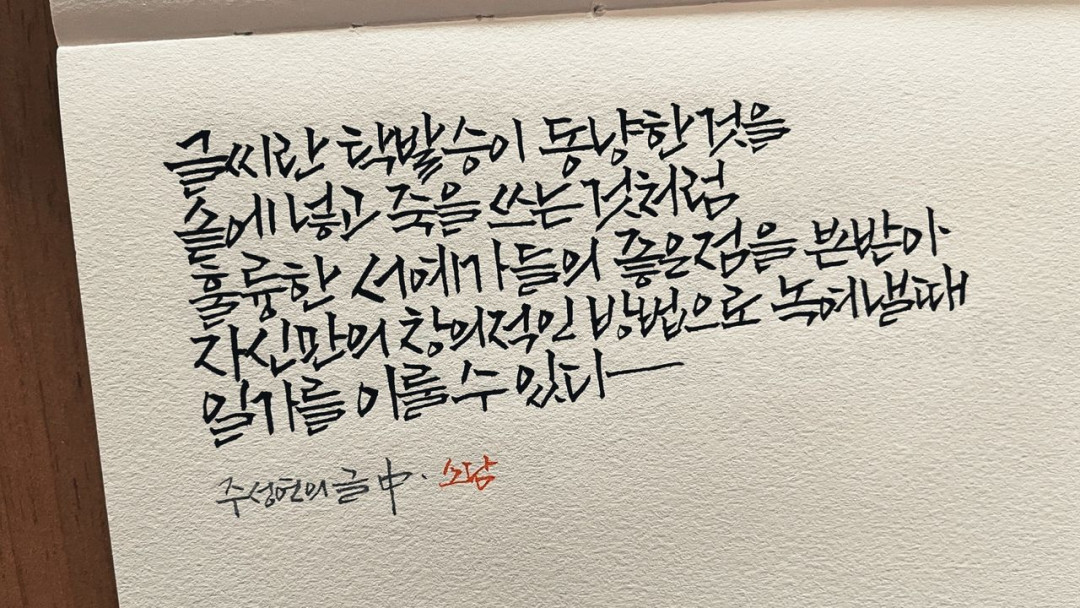 글씨란 탁발승이 동냥한것을
솥에 넣고 죽을 쓰는것처럼
훌륭한 서예가들의 좋은점을 본받아
자신만의 창의적인 방법으로 녹여낼때
일가를 이룰 수 있다
주성헌의 글 中 · 소담